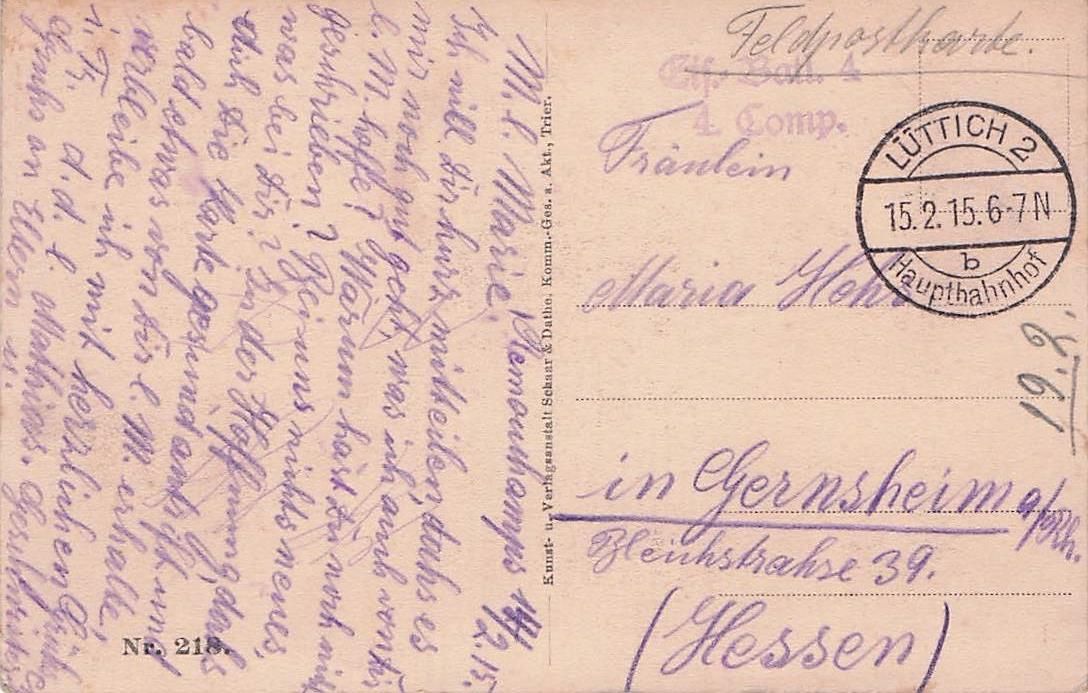 Remonchamps 14/2.15.
M. l. Marie.
Ich will dir kurz mitteilen, dahs es
mir noch gut geht, was ich auch von dir
l. M. hoffe? Warum hast du noch nicht
geschrieben? Bei uns nichts neues,
was bei dir? In der Hoffnung, dahs
dich die Karte gesund antrifft und
bald etwas von dir l. M. erhalte,
verbleibe ich mit herzlichen Grüße
d. d. l. Mathias.
Gruß an Eltern u. Geschwister
Nr. 218.
Kunst- u. Verlagsanstalt Schaar & Dathe, Komm.-Ges. a. Akt., Trier.
Feldpostkarte.
Batl. 4
4. Comp.
LÜTTICH 2
15.2.15.6-7N
b
Hauptbahnhof
Fräulein
Maria
19.2.
in Gernsheim a/Rh.
Bleichstrahse 39.
(Hessen)